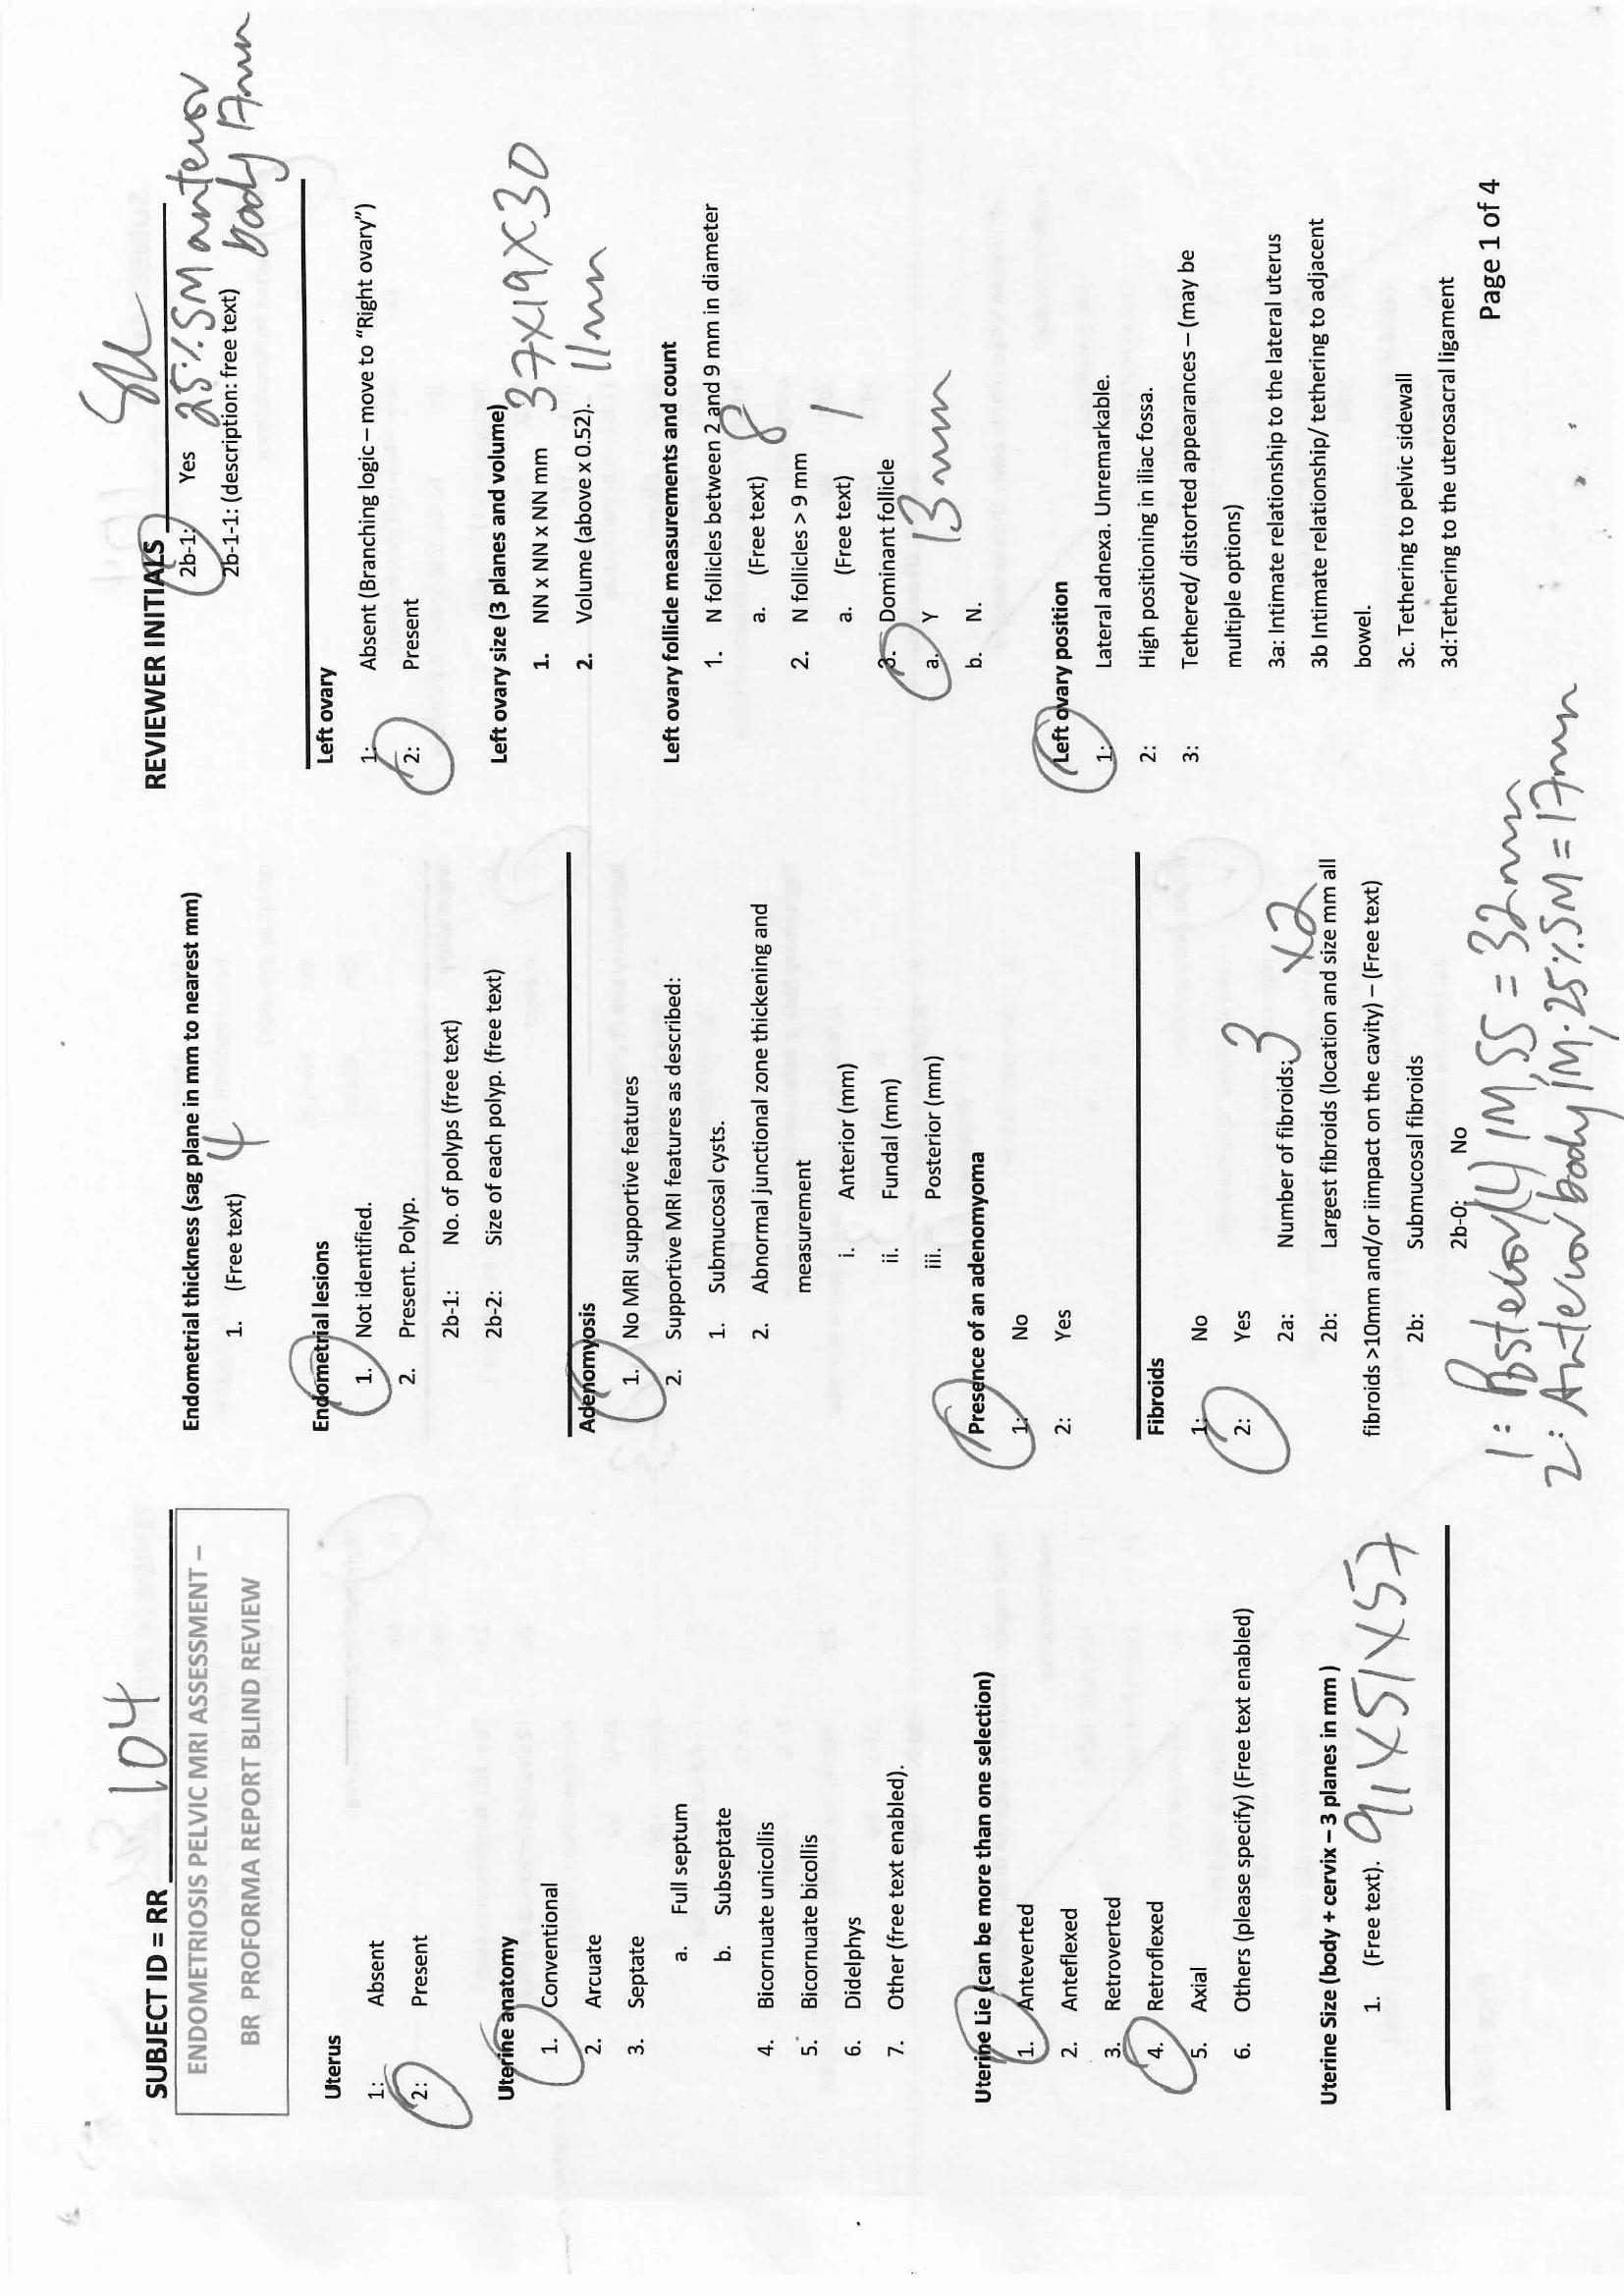 SUBJECT ID = RR 104
ENDOMETRIOSIS PELVIC MRI ASSESSMENT –
BR PROFORMA REPORT BLIND REVIEW
Uterus
1: Absent
2: Present
Uterine anatomy
1. Conventional
2. Arcuate
3. Septate
a. Full septum
b. Subseptate
4. Bicornuate unicollis
5. Bicornuate bicollis
6. Didelphys
7. Other (free text enabled).
Uterine Lie (can be more than one selection)
1. Anteverted
2. Anteflexed
3. Retroverted
4. Retroflexed
5. Axial
6. Others (please specify) (Free text enabled)
Uterine Size (body + cervix – 3 planes in mm )
1. (Free text). 91X51X57
Endometrial thickness (sag plane in mm to nearest mm)
1. (Free text) 4
Endometrial lesions
1. Not identified.
2. Present. Polyp.
2b-1: No. of polyps (free text)
2b-2: Size of each polyp. (free text)
Adenomyosis
1. No MRI supportive features
2. Supportive MRI features as described:
1. Submucosal cysts.
2. Abnormal junctional zone thickening and
measurement
i. Anterior (mm)
ii. Fundal (mm)
iii. Posterior (mm)
Presence of an adenomyoma
1: No
2: Yes
Fibroids
1: No
2: Yes
2a: Number of fibroids: 3 x2
2b: Largest fibroids (location and size mm all
fibroids >10mm and/or iimpact on the cavity) – (Free text)
2b: Submucosal fibroids
2b-0: No
1: Posterior IM,SS = 32mm
2: Anterior body IM. 25% SM = 17mm
REVIEWER INITIALS
2b-1: Yes 25% SM anterior
body 17mm
2b-1-1: (description: free text)
Left ovary
1: Absent (Branching logic – move to "Right ovary")
2: Present
Left ovary size (3 planes and volume)
1. NN x NN x NN mm 37x19x30
2. Volume (above x 0.52). 11mm
Left ovary follicle measurements and count
1. N follicles between 2 and 9 mm in diameter
a. (Free text) 8
2. N follicles > 9 mm
a. (Free text) 1
3. Dominant follicle
a. Y 13mm
b. N.
Left ovary position
1: Lateral adnexa. Unremarkable.
2: High positioning in iliac fossa.
3: Tethered/ distorted appearances – (may be
multiple options)
3a: Intimate relationship to the lateral uterus
3b Intimate relationship/ tethering to adjacent
bowel.
3c. Tethering to pelvic sidewall
3d:Tethering to the uterosacral ligament
Page 1 of 4